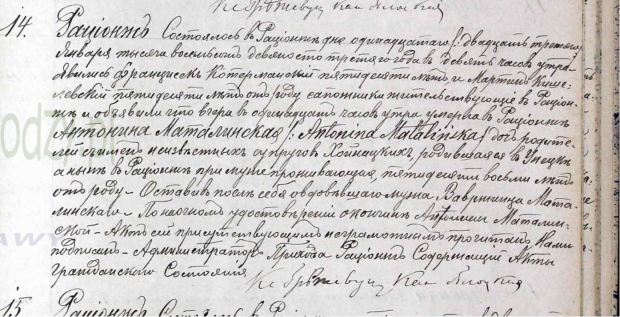 14.
Раціонжъ Состоялось въ Раціонжѣ дня одинадцатаго /: двадцать третьяго
Января тысяча восемьсотъ девяносто третяго года въ девять часовъ утра
Явились Францискъ Котермански пятидесяти лѣтъ и Мартинъ
левскій пятидесяти лѣтъ отъ роду сапожники жительствующіе въ Раціон-
жѣ и объявили что вчера въ одинадцать часовъ утра умерла въ Раціонжѣ
Антонина Маталинская /: Antonina Matalińska / дочь родите-
лей съ имени неизвѣстныхъ супруговъ Хойнацкихъ, родившаяся въ
а нынѣ въ Раціонжѣ при мужѣ проживающая, пятидесяти восьми лѣтъ
отъ роду – Оставивъ послѣ себя овдовѣвшаго мужа Вавржинца Мата-
линскаго – По наочномъ удостовѣреніи о кончинѣ Антонины Маталин-
ской – Актъ сей присутствующимъ неграмотнымъ прочитанъ Нами
подписанъ – Администраторъ Прихода Раціонжъ Содержащій Акты
Гражданскаго Состоянія
15
Раціонжъ Состоялось въ